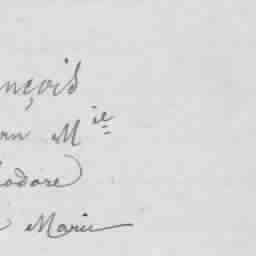 nçois
rn M.ie
odore
Marie